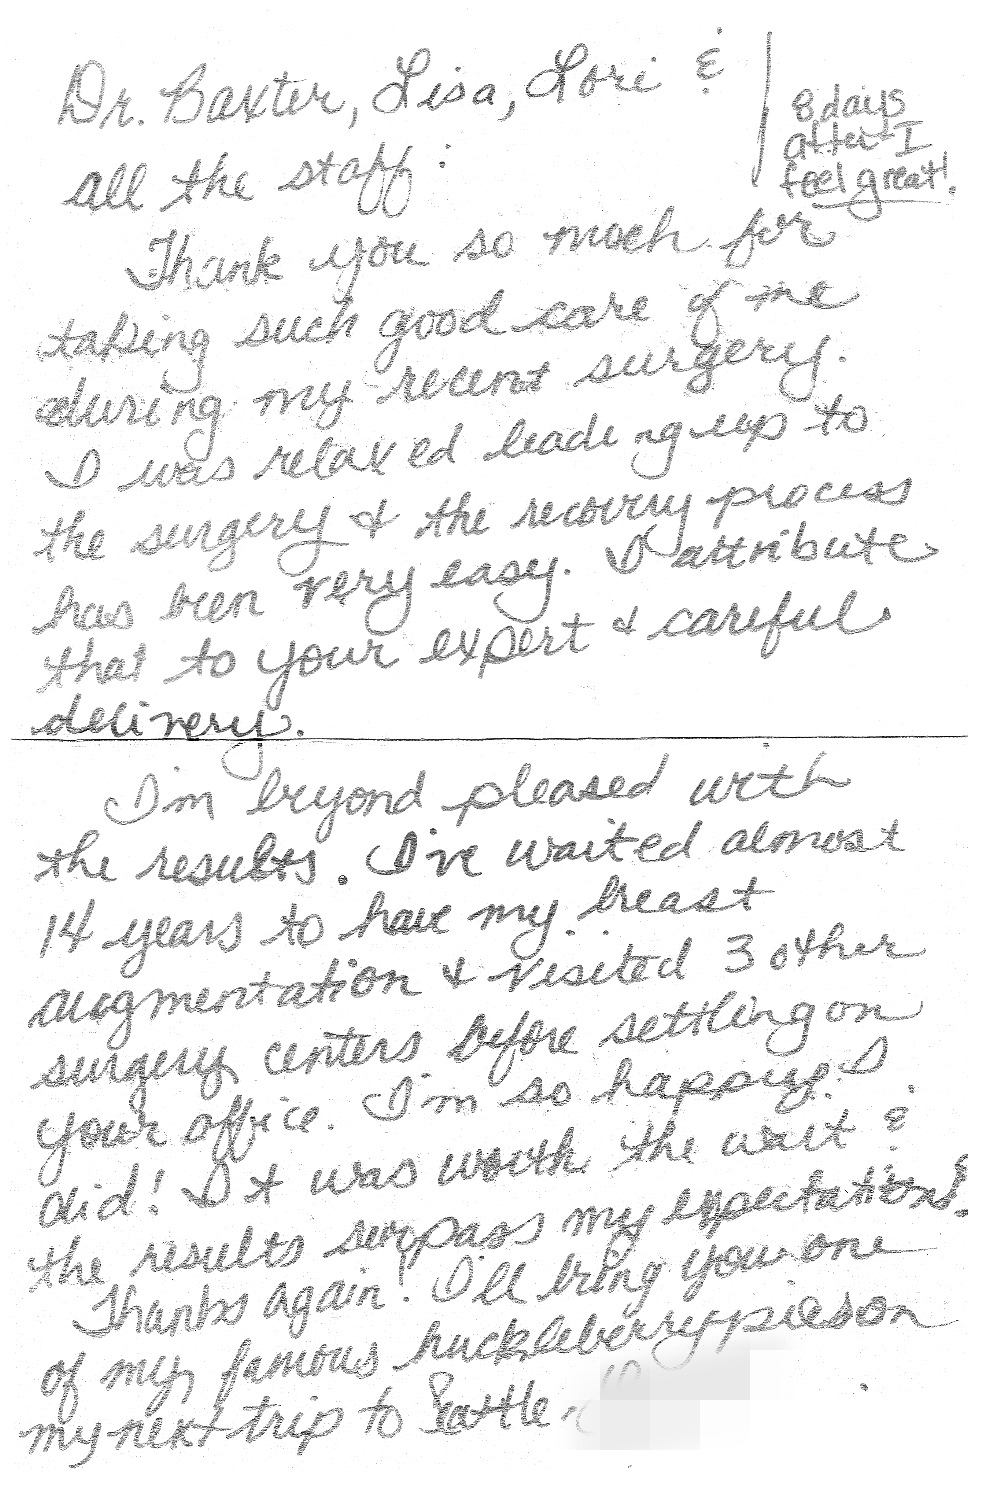 Dr. Baxter, Lisa, Lori &
all the staff:
8 days
after I
feel great!
Thank you so much for
taking such good care of me
during my recent surgery.
I was relaxed leading up to
the surgery & the recovery process
has been very easy. I attribute
that to your expert & careful
delivery.
I'm beyond pleased with
the results. I've waited almost
14 years to have my breast
augmentation & visited 3 other
surgery centers before settling on
your office. I'm so happy I
did! It was worth the wait &
the results surpass my expectations!
Thanks again! I'll bring you one
of my famous huckleberry pies on
my next trip to Seattle